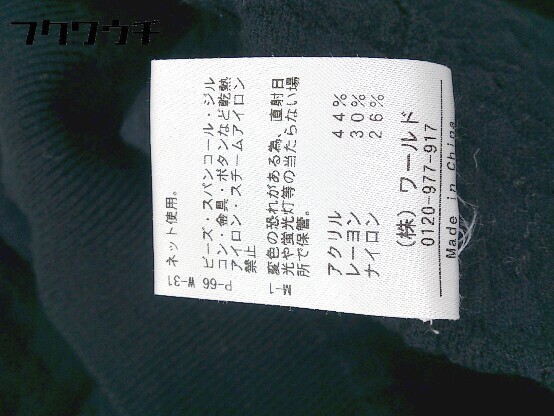 フクワウチ
ネット使用。
黒-31
P-66
ビーズ・スパンコール・ジル
コン・金具・ボタンなど乾熱
アイロン・スチームアイロン
禁止
変色の恐れがある為、直射日
光や蛍光灯等の当たらない場
所で保管。
アクリル 44%
レーヨン 30%
ナイロン 26%
(株) ワールド
0120-977-917
Made in China